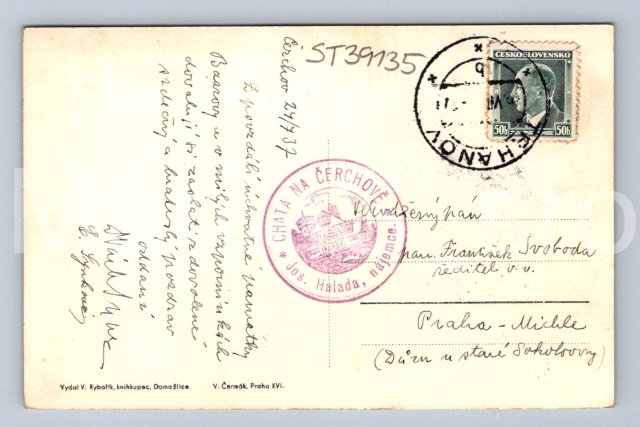 ST39135
Čerchov 24/7 37
Z povzdálí úchvatné památky
a v milých vzpomínkách
dovoluji si zaslat z dovolené
srdečný a bratrský pozdrav
oddaní
ČESKOSLOVENSKO
50h 50h
CHATA NA ČERCHOVĚ
* Jos. Halada, nájemce. *
Velevážený pán
pan František Svoboda
ředitel v. v.
Praha - Michle
u staré Sokolovny)
Vydal V. Rybařík, knihkupec, Domažlice.
V. Čermák, Praha XVI.